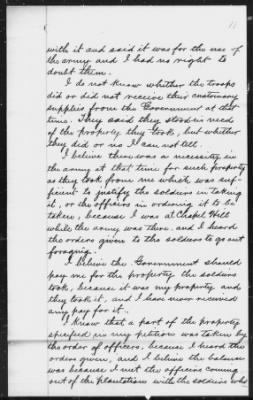 11
with it and said it was for the use of
the army and I had no right to
doubt them.
I do not know whether the troops
did or did not receive their customary
supplies from the Government at that
time. They said they stood in need
of the property they took, but whether
they did or no I can not tell.
I believe there was a necessity in
the army at that time for such property
as they took from me which was suf-
ficient to justify the soldiers in taking
it, or the officers in ordering it to be
taken, because I was at Chapel Hill
while the army was there and I heard
the orders given to the soldiers to go out
foraging.
I believe the Government should
pay me for the property the soldiers
took, because it was my property and
they took it, and I have never received
any pay for it.
I know that a part of the property
specified in my petition was taken by
the order of officers, because I heard the
orders given, and I believe the balance
was because I met the officers coming
out of the plantation with the soldiers who